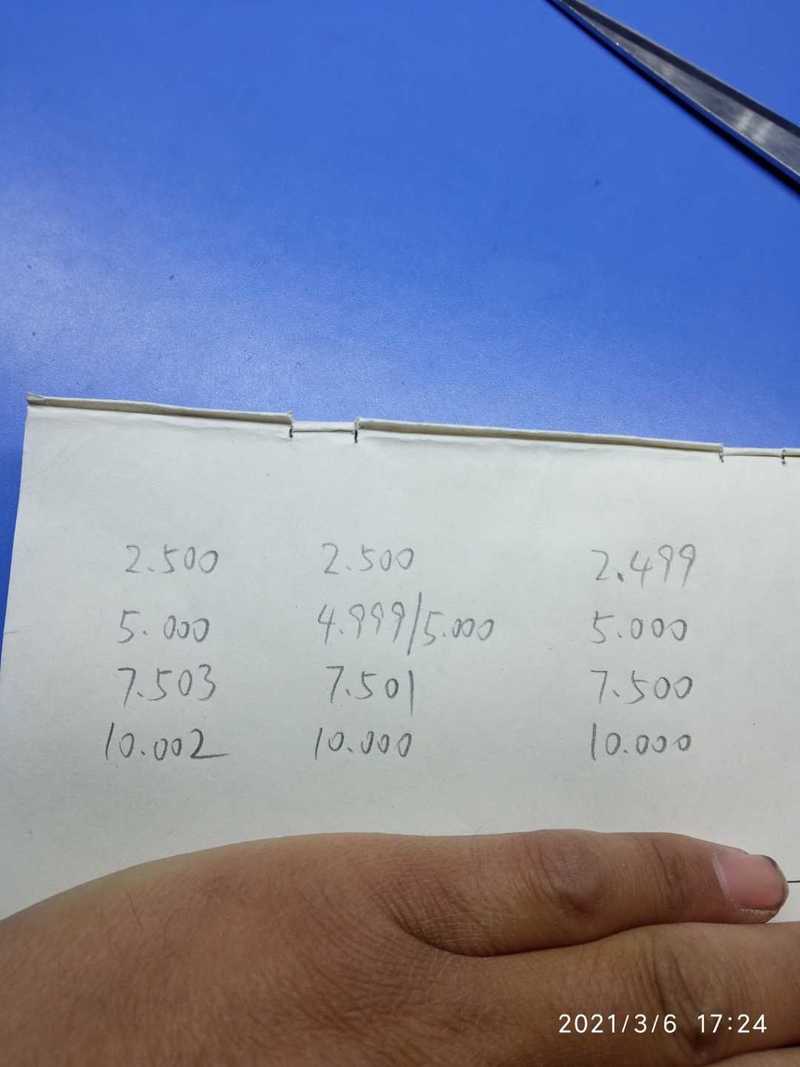 2.500 2.500 2.499
5.000 4.999/5.000 5.000
7.503 7.501 7.500
10.002 10.000 10.000
2021/3/6 17:24